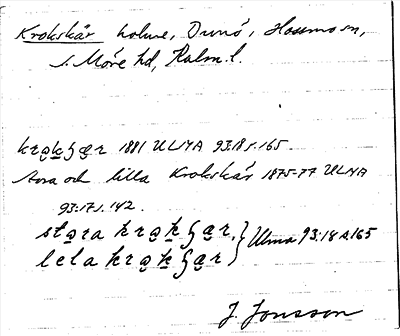 Krokskär holme, Dunö, Hossmo sn,
S. Möre hd, Kalm. l.
kro̱ḵʂæ̱r 1881 ULMA 93:18 s. 165.
Stora och lilla Krokskär 1875-77 ULMA
93:17 s. 142.
sto̱ra kro̱ḵʂæ̱r } Ulma 93:18 s. 165
lela kro̱ḵʂæ̱r
J. Jonsson